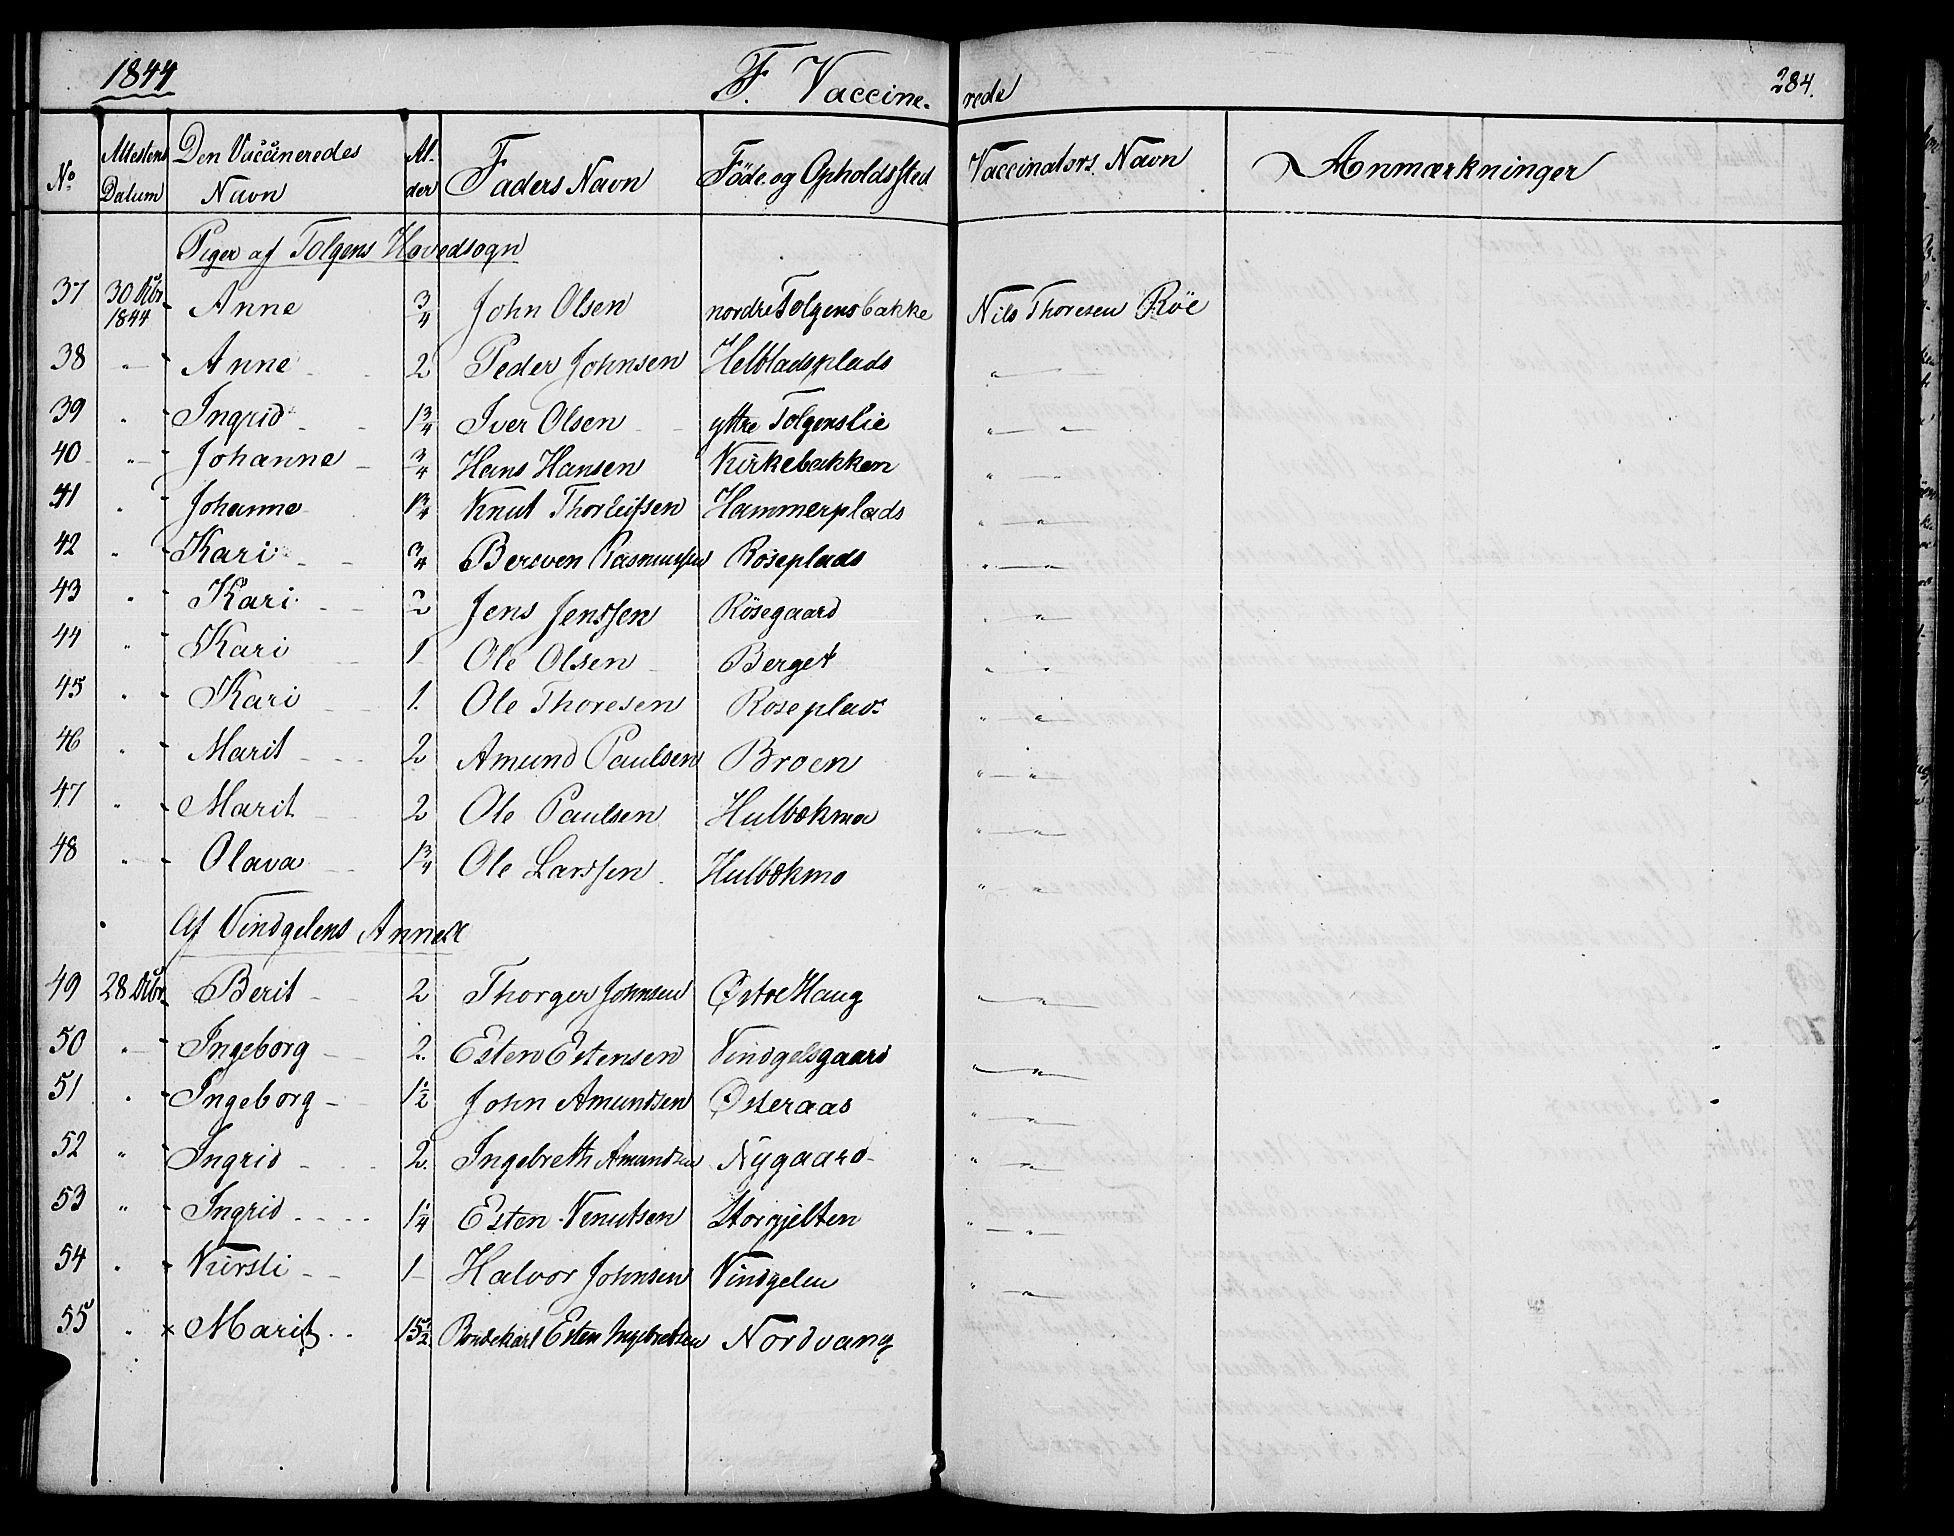 1844 F. Vaccine- rede 284.
No Attestens Datum Den Vaccineredes Navn Al- der Faders Navn Føde og Opholdssted Vaccinators Navn Anmærkninger
Piger af Tolgens Hovedsogn
37 30 Dcbr 1844 Anne 3/4 John Olsen nordre Tolgensbakke Nils Thoresen Röe
38 " Anne 2 Peder Johnsen Helbladsplads " "
39 " Ingrid 1 3/4 Iver Olsen yttre Tolgenslie " "
40 " Johanne 3/4 Hans Hansen Kirkebakken " "
41 " Johanne 1 3/4 Knut Thorleifsen Hammerplads " "
42 " Kari 3/4 Bersven Rasmussen Röseplads " "
43 " Kari 2 Jens Jenssen Rösegaard " "
44 " Kari 1 Ole Olsen Berget " "
45 " Kari 1. Ole Thoresen Roseplads " "
46 " Marit 2 Amund Paulsen Broen " "
47 " Marit 2 Ole Paulsen Hulbækmo " "
48 " Olava 1 3/4 Ole Larssen Hulbækmo " "
Af Vindgelens Annex
49 28 Dcbr Berit 2 Thorger Johnsen Østre Haug " "
50 " Ingeborg 2. Esten Estensen Vindgelsgaard " "
51 " Ingeborg 1 1/2 John Amundsen Østeraas " "
52 " Ingrid 2. Ingebreth Amundsen Nygaard " "
53 " Ingrid 1 1/4 Esten Knutsen Storgjelten " "
54 " Kirsti 1 Halvor Johnsen Vindgelen " "
55 " x Marit 15 1/2. Bondekarl Esten Ingebretsen Nordvang